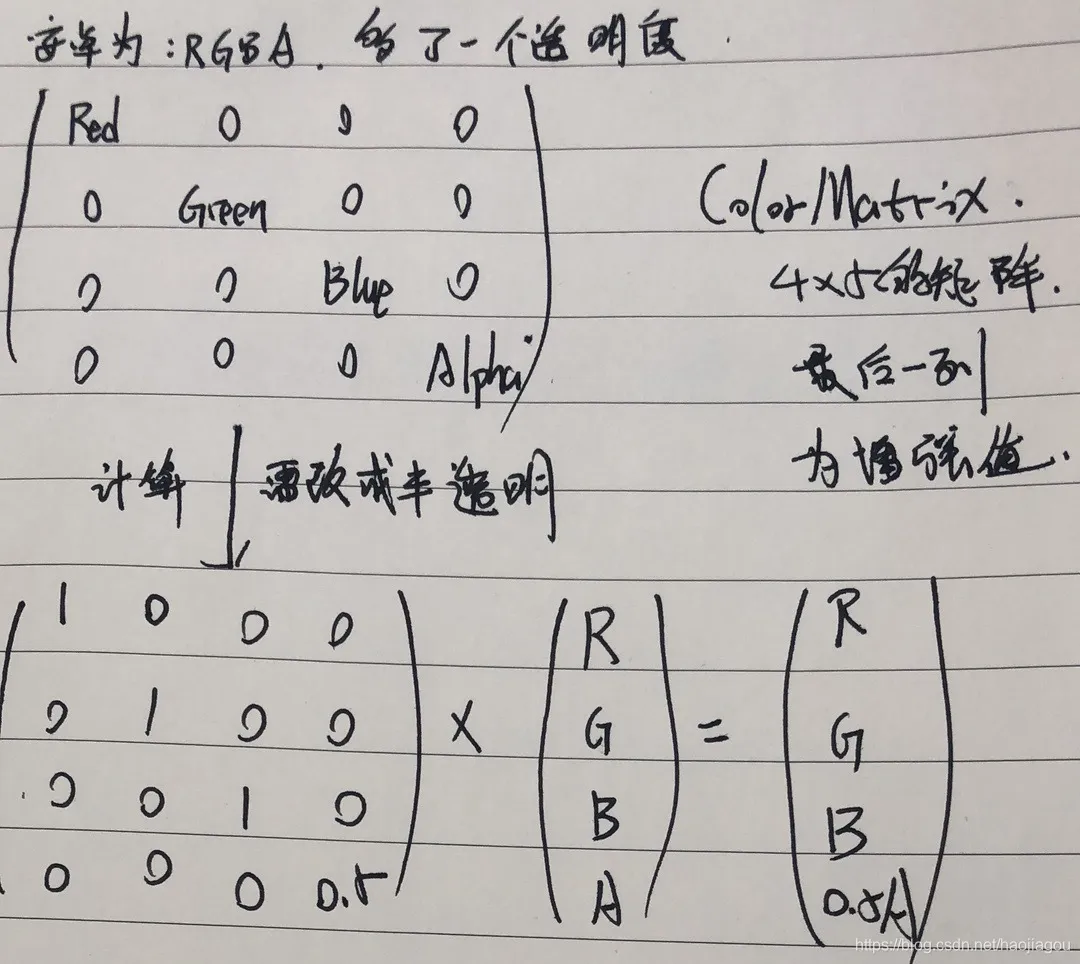 安卓为:RGBA.多了一个透明度.
Red 0 0 0
0 Green 0 0
0 0 Blue 0
0 0 0 Alpha
ColorMatrix.
4×5的矩阵.
最后一列
为增强值.
计算 需改成半透明
1 0 0 0
0 1 0 0
0 0 1 0
0 0 0 0.5
×
R
G
B
A
=
R
G
B
0.5A
https://blog.csdn.net/haojiagou